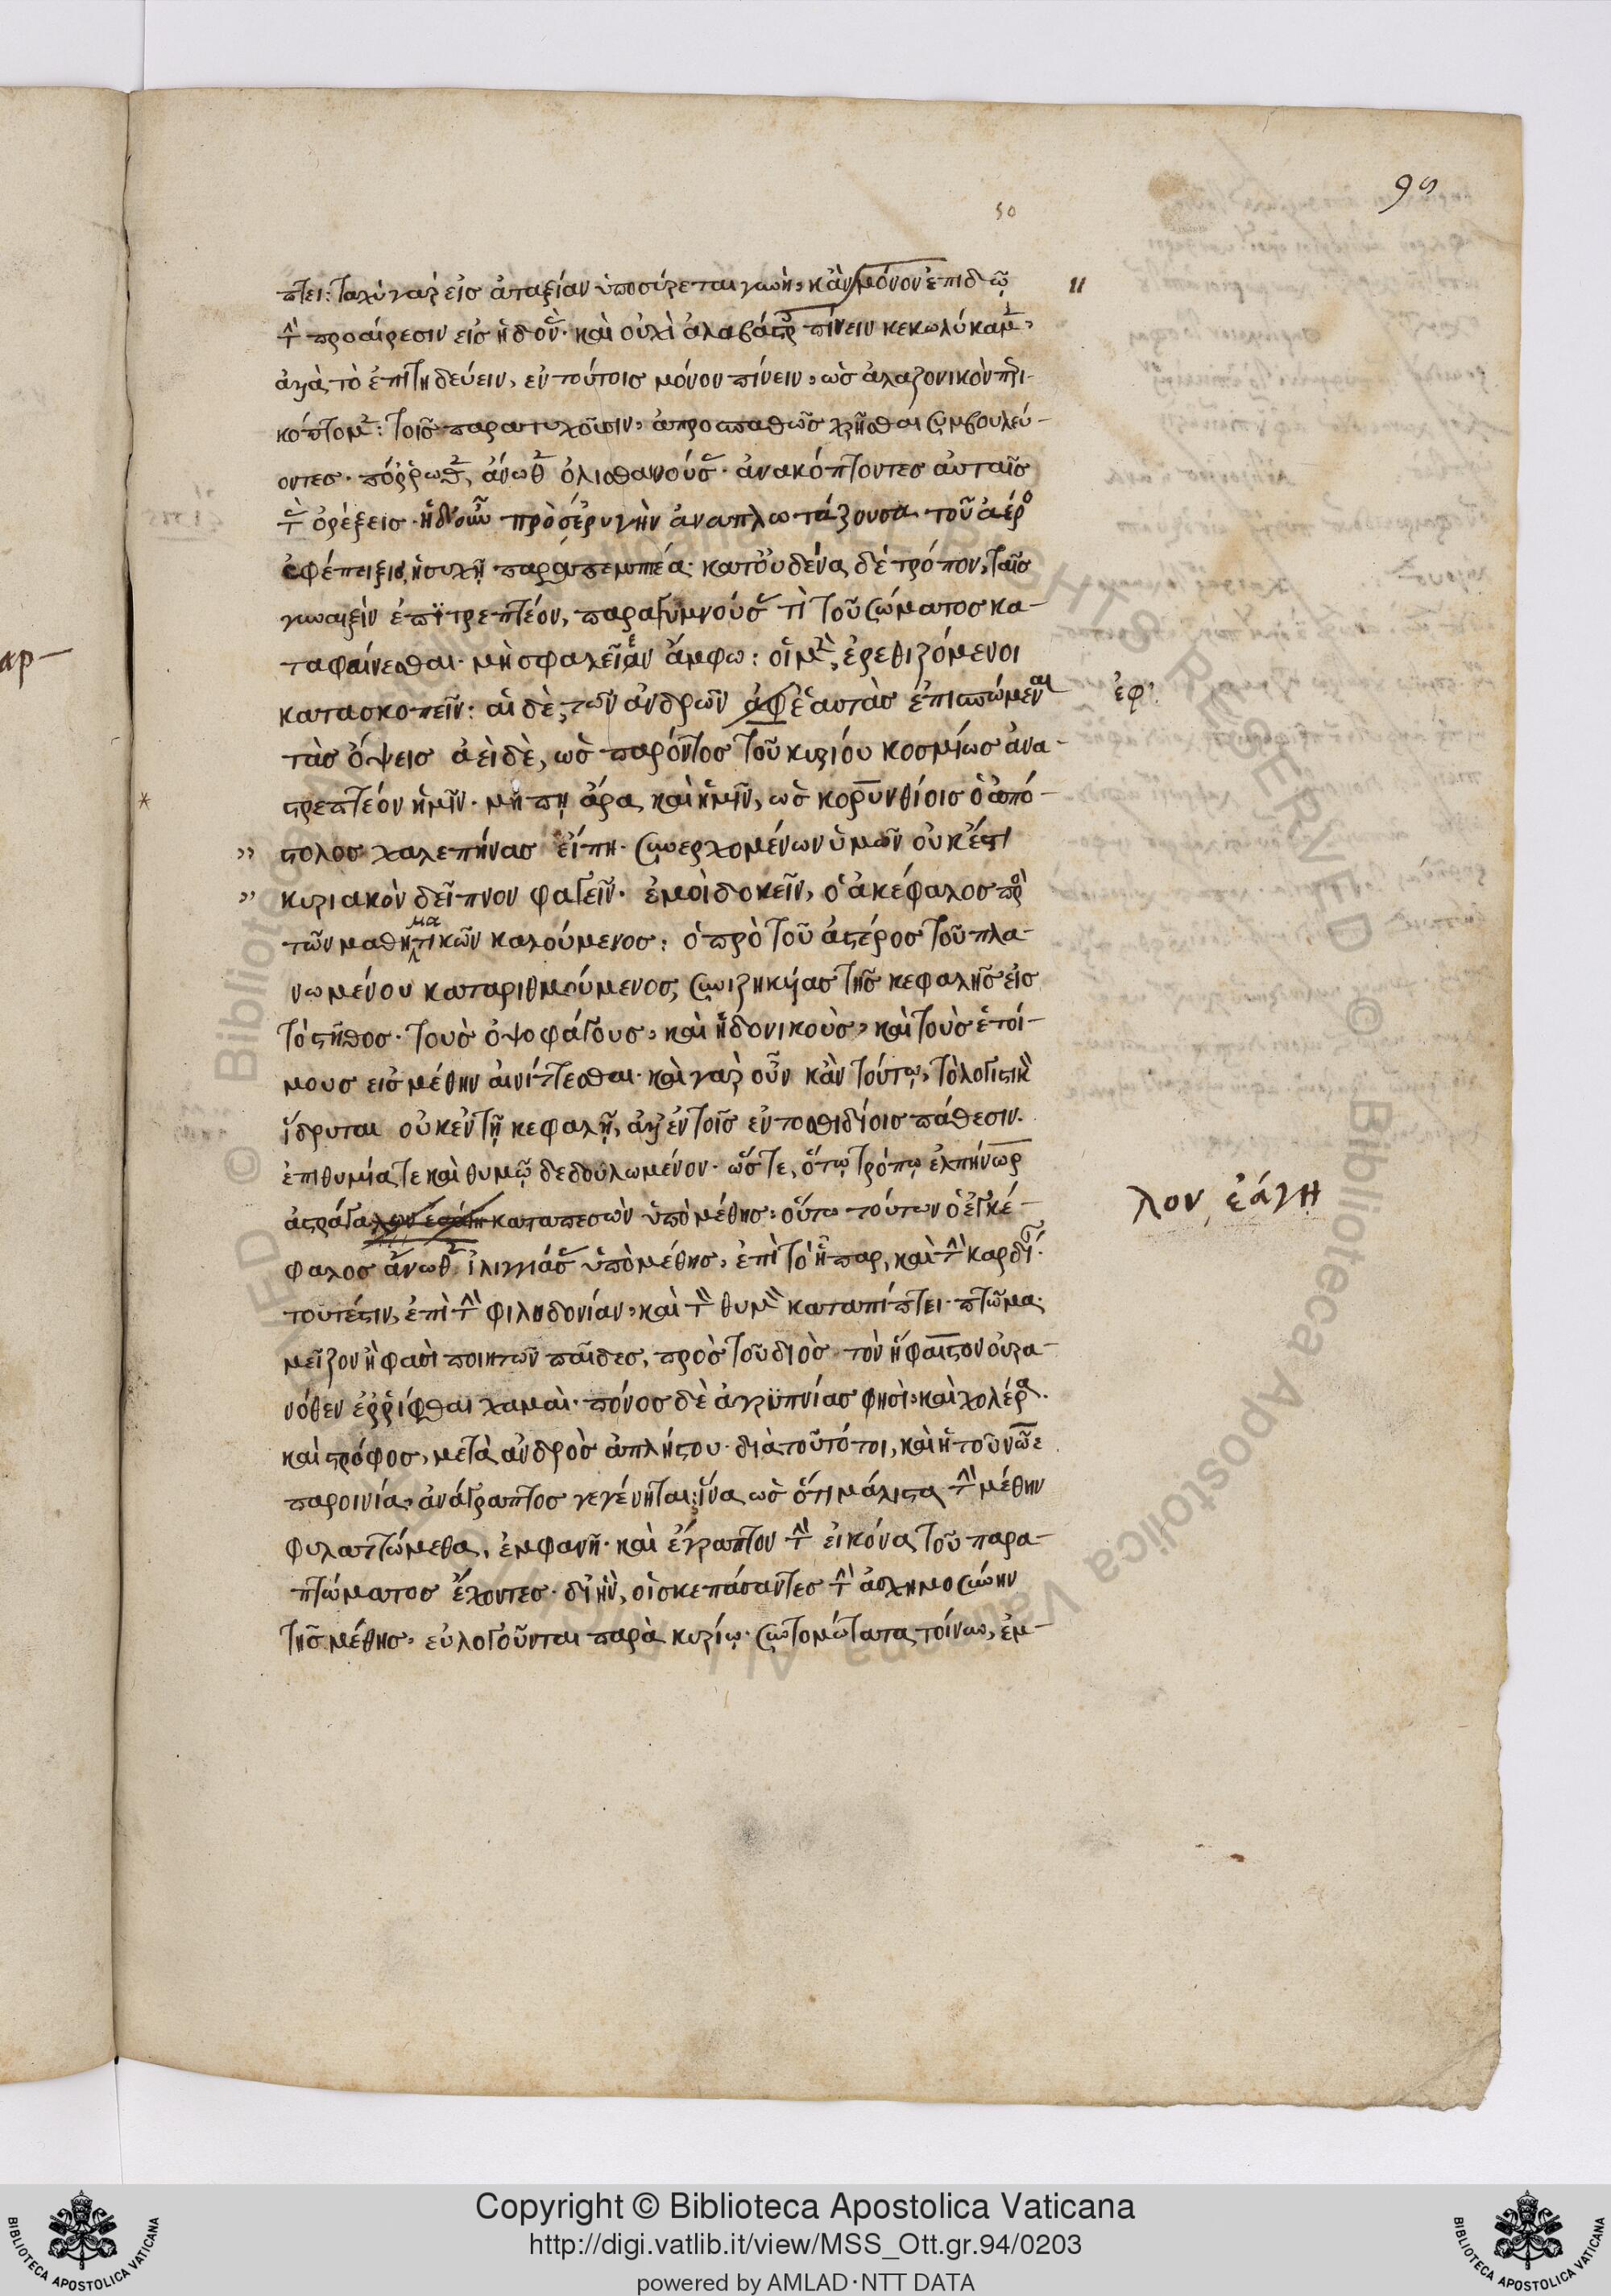 98
50
πτει: ταχὺ γὰρ εἰς ἀταξίαν ὑποσύρεται γυνή, κἂν μόνον ἐπιδῷ
τὴν προαίρεσιν εἰς ἡδονήν· καὶ οὐχὶ ἀλαβάστροις πίνειν κεκωλύκαμεν,
ἀλλὰ τὸ ἐπιτηδεύειν, ἐν τούτοις μόνον πίνειν, ὡς ἀλαζονικὸν περι-
κόπτομεν: τοῖς παρατυχοῦσιν, ἀπροσπαθῶς χρῆσθαι συμβουλεύ-
οντες· πόρρωθεν, ἄνωθεν ὀλισθανούσας· ἀνακόπτοντες αὐταῖς
τὰς ὀρέξεις· ἡ δ' οὖν πρὸς ἐρυγὴν ἀναπλωτάζουσα τοῦ ἀέρος
ἐφέπειξις, ἡσυχῇ παραπεμπτέα· κατ' οὐδένα δὲ τρόπον, ταῖς
γυναιξὶν ἐπιτρεπτέον, παραγυμνούσαις τὶ τοῦ σώματος κα-
ταφαίνεσθαι· μὴ σφαλεῖεν ἄμφω: οἱ μὲν, ἐρεθιζόμενοι
κατασκοπεῖν: αἱ δὲ, τῶν ἀνδρῶν ἀφ' ἑαυτὰς ἐπισπώμεναι ἐφ'
τὰς ὄψεις ἀεὶ δὲ, ὡς παρόντος τοῦ κυρίου κοσμίως ἀνα-
* στρεπτέον ἡμῖν· μή πῃ ἄρα καὶ ἡμῖν, ὡς κορυνθίοις ὁ ἀπό-
" στολος χαλεπήνας εἴπη· συνερχομένων ὑμῶν οὐκ ἔστι
" κυριακὸν δεῖπνον φαγεῖν· ἐμοὶ δοκεῖν, ὁ ἀκέφαλος πρὸς
τῶν μαθηματικῶν καλούμενος: ὁ πρὸ τοῦ ἀστέρος τοῦ πλα-
νωμένου καταριθμούμενος, συνιζηκυίας τῆς κεφαλῆς εἰς
τὸ στῆθος· τοὺς ὀψοφάγους, καὶ ἡδονικοὺς, καὶ τοὺς ἑτοί-
μους εἰς μέθην αἰνίττεσθαι· καὶ γὰρ οὖν κἂν τούτῳ, τὸ λογιστικὸν
ἵδρυται οὐκ ἐν τῇ κεφαλῇ, ἀλλ' ἐν τοῖς ἐντοσθιδίοις πάθεσιν·
ἐπιθυμία τε καὶ θυμῷ δεδουλωμένον· ὥστε, ὅτῳ τρόπῳ ἐλπήνωρ
ἀστράγαλον ἐάγη καταπεσὼν ὑπὸ μέθης: οὕτω τούτων ὁ ἐγκέ- λον ἐάγη
φαλος ἄνωθεν ἰλιγγιάσας ὑπὸ μέθης, ἐπὶ τὸ ἧπαρ, καὶ τὴν καρδίαν·
τουτέστιν, ἐπὶ τὴν φιληδονίαν, καὶ τὸν θυμὸν καταπίπτει· πτῶμα
μεῖζον ἢ φασὶ ποιητῶν παῖδες, πρὸς τοῦ διὸς τὸν ἥφαιστον οὐρα-
νόθεν ἐρρίφθαι χαμαὶ· πόνος δὲ ἀγρυπνίας φησὶ, καὶ χολέρα·
καὶ στρόφος, μετὰ ἀνδρὸς ἀπλήστου· διὰ τοῦτό τοι, καὶ ἡ τοῦ νῶε
παροινία, ἀνάγραπτος γεγένηται: ἵνα ὡς ὅτι μάλιστα τὴν μέθην
φυλαττώμεθα, ἐμφανῆ· καὶ ἔγγραπτον τὴν εἰκόνα τοῦ παρα-
πτώματος ἔχοντες· δι' ἣν, οἱ σκεπάσαντες τὴν ἀσχημοσύνην
τῆς μέθης, εὐλογοῦνται παρὰ κυρίῳ· συντομώτατα τοίνυν, ἐμ-
αρ-
© Biblioteca Apostolica Vaticana ALL RIGHTS RESERVED
Copyright © Biblioteca Apostolica Vaticana
http://digi.vatlib.it/view/MSS_Ott.gr.94/0203
powered by AMLAD·NTT DATA
BIBLIOTECA APOSTOLICA VATICANA
BIBLIOTECA APOSTOLICA VATICANA